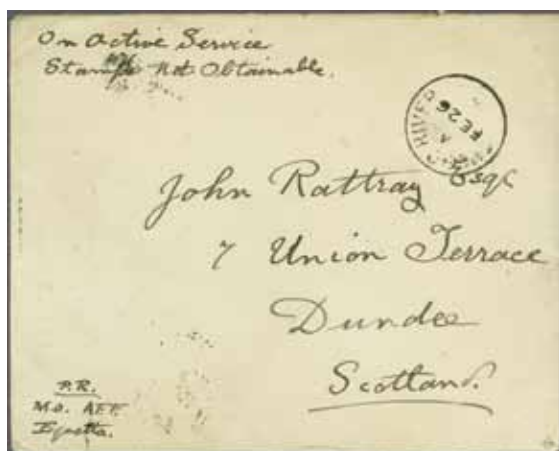 On Active Service
Stamps Not Obtainable.
RIVER
FE 26
John Rattray Esqr
7 Union Terrace
Dundee
Scotland.
P.R.
M.O.